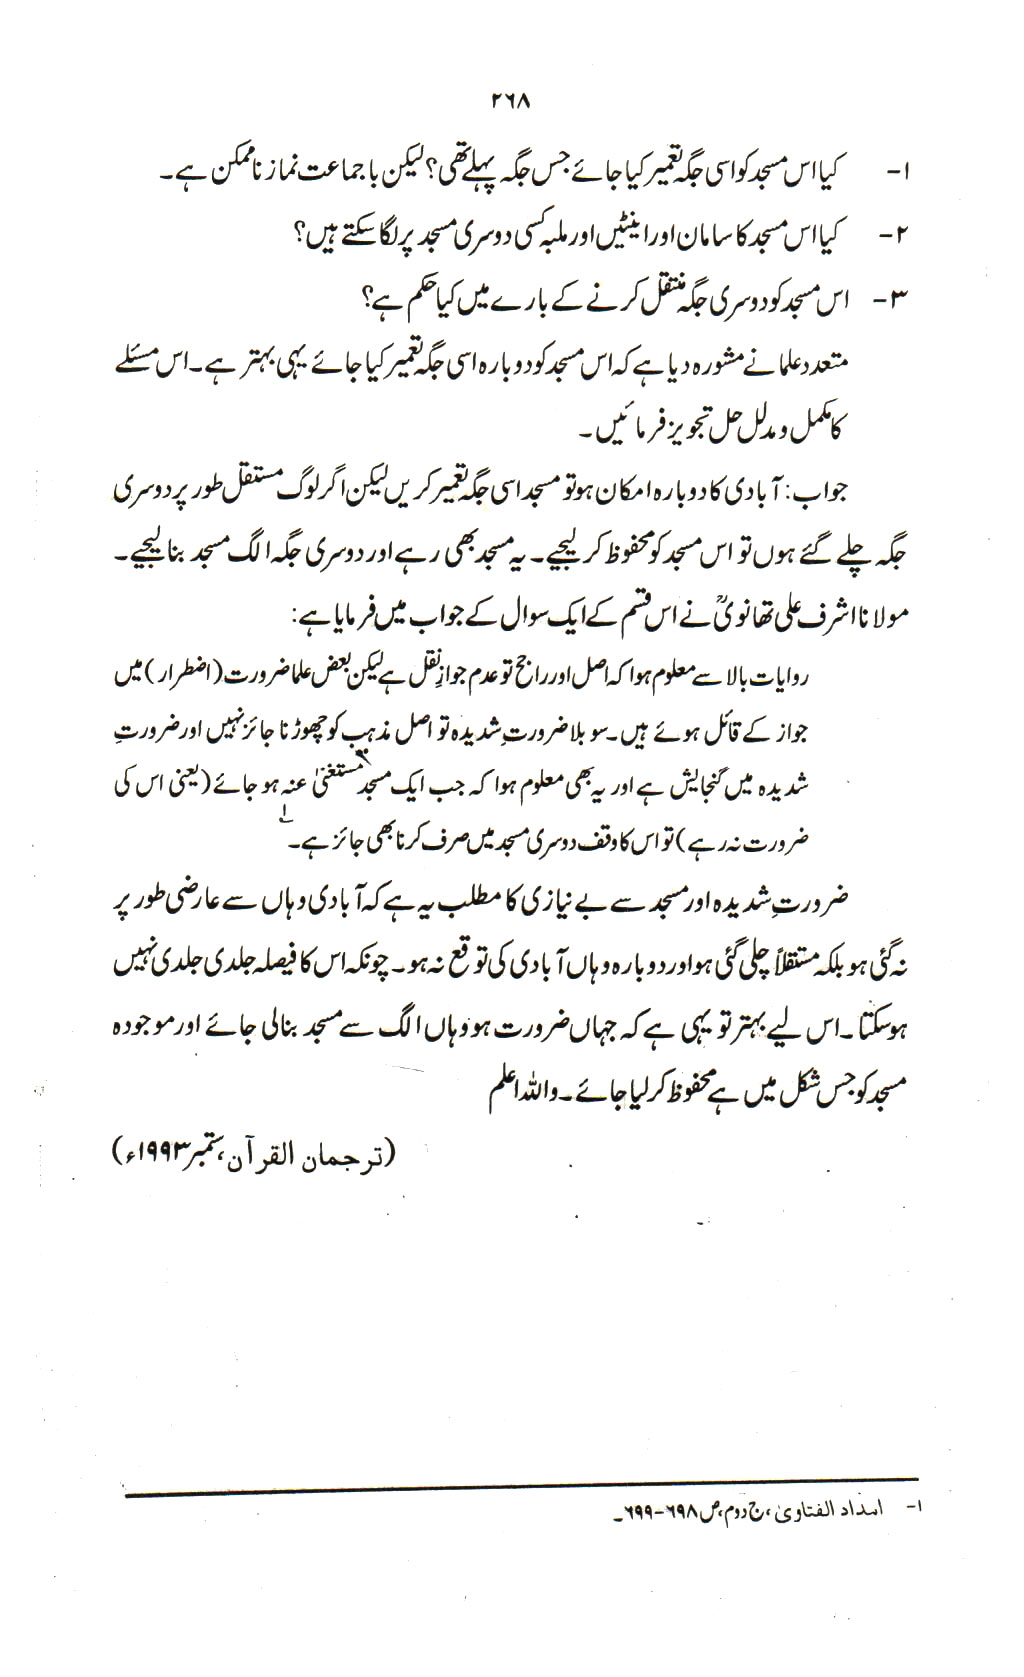 ۲۶۸
۱- کیا اس مسجد کو اسی جگہ تعمیر کیا جائے جس جگہ پہلے تھی؟ لیکن باجماعت نماز ناممکن ہے۔
۲- کیا اس مسجد کا سامان اور اینٹیں اور ملبہ کسی دوسری مسجد پر لگا سکتے ہیں؟
۳- اس مسجد کو دوسری جگہ منتقل کرنے کے بارے میں کیا حکم ہے؟
متعدد علما نے مشورہ دیا ہے کہ اس مسجد کو دوبارہ اسی جگہ تعمیر کیا جائے یہی بہتر ہے۔ اس مسئلے
کا مکمل و مدلل حل تجویز فرمائیں۔
جواب: آبادی کا دوبارہ امکان ہو تو مسجد اسی جگہ تعمیر کریں لیکن اگر لوگ مستقل طور پر دوسری
جگہ چلے گئے ہوں تو اس مسجد کو محفوظ کر لیجیے۔ یہ مسجد بھی رہے اور دوسری جگہ الگ مسجد بنا لیجیے۔
مولانا اشرف علی تھانویؒ نے اس قسم کے ایک سوال کے جواب میں فرمایا ہے:
روایات بالا سے معلوم ہوا کہ اصل اور راجح تو عدم جوازِ نقل ہے لیکن بعض علما ضرورت (اضطرار) میں
جواز کے قائل ہوئے ہیں۔ سو بلا ضرورتِ شدیدہ تو اصل مذہب کو چھوڑنا جائز نہیں اور ضرورتِ
شدیدہ میں گنجایش ہے اور یہ بھی معلوم ہوا کہ جب ایک مسجد مستغنیٰ عنہ ہو جائے (یعنی اس کی
ضرورت نہ رہے) تو اس کا وقف دوسری مسجد میں صرف کرنا بھی جائز ہے۔۱
ضرورتِ شدیدہ اور مسجد سے بے نیازی کا مطلب یہ ہے کہ آبادی وہاں سے عارضی طور پر
نہ گئی ہو بلکہ مستقلاً چلی گئی ہو اور دوبارہ وہاں آبادی کی توقع نہ ہو۔ چونکہ اس کا فیصلہ جلدی جلدی نہیں
ہو سکتا۔ اس لیے بہتر تو یہی ہے کہ جہاں ضرورت ہو وہاں الگ سے مسجد بنا لی جائے اور موجودہ
مسجد کو جس شکل میں ہے محفوظ کر لیا جائے۔ واللہ اعلم
(ترجمان القرآن، ستمبر ۱۹۹۳ء)
۱- امداد الفتاویٰ، ج دوم، ص ۶۹۸-۶۹۹۔